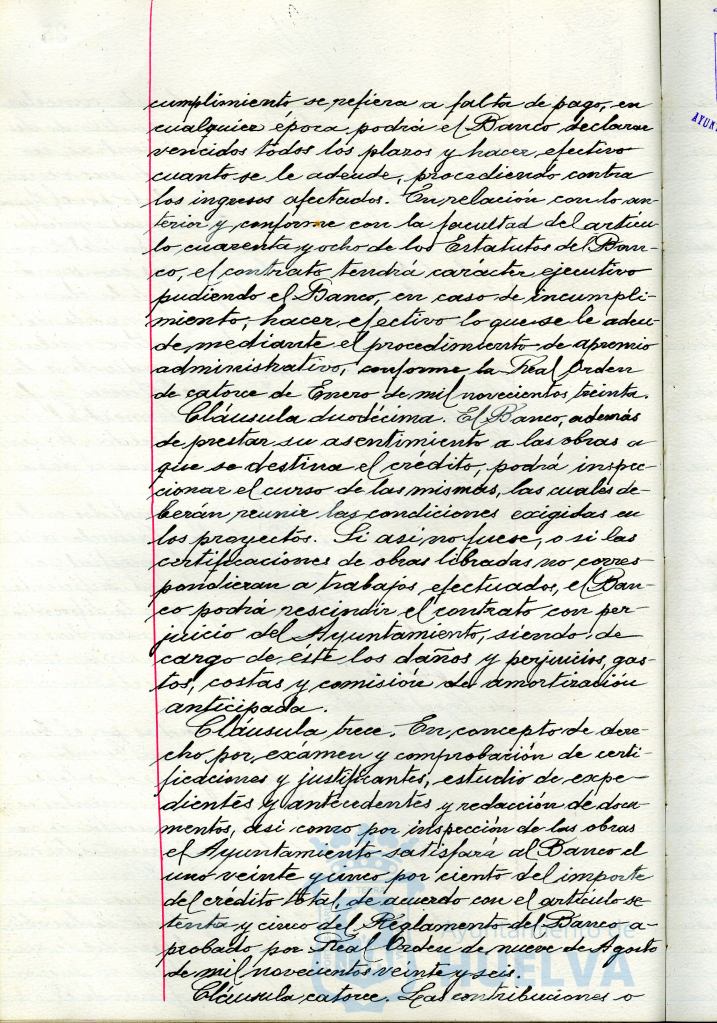 cumplimiento se refiera a falta de pago, en
cualquier época podrá el Banco, declarar
vencidos todos los plazos y hacer efectivo
cuanto se le adeude, procediendo contra
los ingresos afectados. En relación con lo an-
terior y conforme con la facultad del artícu-
lo cuarenta y ocho de los Estatutos del Ban-
co, el contrato tendrá carácter ejecutivo
pudiendo el Banco, en caso de incumpli-
miento, hacer efectivo lo que se le adeu-
de mediante el procedimiento de apremio
administrativo, conforme la Real Orden
de catorce de Enero de mil novecientos treinta.
Cláusula duodécima. El Banco, además
de prestar su asentimiento a las obras a
que se destina el crédito, podrá inspec-
cionar el curso de las mismas, las cuales de-
berán reunir las condiciones exigidas en
los proyectos. Si asi no fuese, o si las
certificaciones de obras libradas no corres-
pondieran a trabajos efectuados, el Ban-
co podrá rescindir el contrato con per-
juicio del Ayuntamiento, siendo de
cargo de éste los daños y perjuicios, gas-
tos, costas y comisión de amortización
anticipada.
Cláusula trece. En concepto de dere-
cho por exámen y comprobación de certi-
ficaciones y justificantes, estudio de expe-
dientes y antecedentes y redacción de docu-
mentos, asi como por inspección de las obras
el Ayuntamiento satisfará al Banco el
uno veinte y cinco por ciento del importe
del crédito total, de acuerdo con el artículo se-
tenta y cinco del Reglamento del Banco a-
probado por Real Orden de nueve de Agosto
de mil novecientos veinte y seis.
Cláusula catorce. Las contribuciones o
Ayuntamiento de
HUELVA